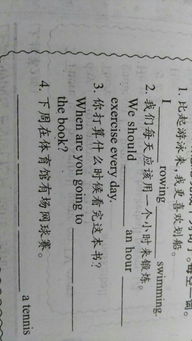 1. 比起游泳来,我更喜欢划船。
I ________ rowing ________ swimming.
2. 我们每天应该用一个小时来锻炼。
We should ________ an hour ________
exercise every day.
3. 你打算什么时候看完这本书?
When are you going to ________
the book?
4. 下周在体育馆有场网球赛。
________ a tennis